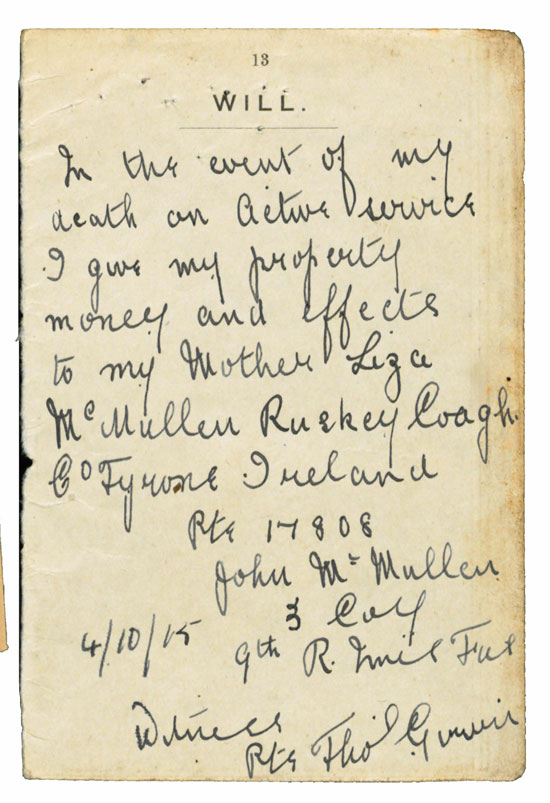 13
WILL.
In the event of my
death on Active service
I give my property
money and effects
to my Mother Liza
McMullen Ruskey Coagh.
Co Tyrone Ireland
Pte 17808
John McMullen
Coy
4/10/15
9th R. Innis Fus
Witness
Pte Thos